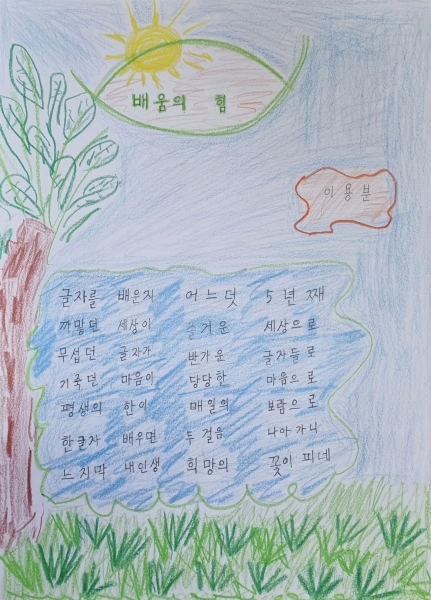 배움의 힘
이용분
글자를 배운지 어느덧 5년째
까맣던 세상이 즐거운 세상으로
무섭던 글자가 반가운 글자들로
기죽던 마음이 당당한 마음으로
평생의 한이 매일의 보람으로
한글자 배우면 두걸음 나아가니
느지막 내인생 희망의 꽃이 피네